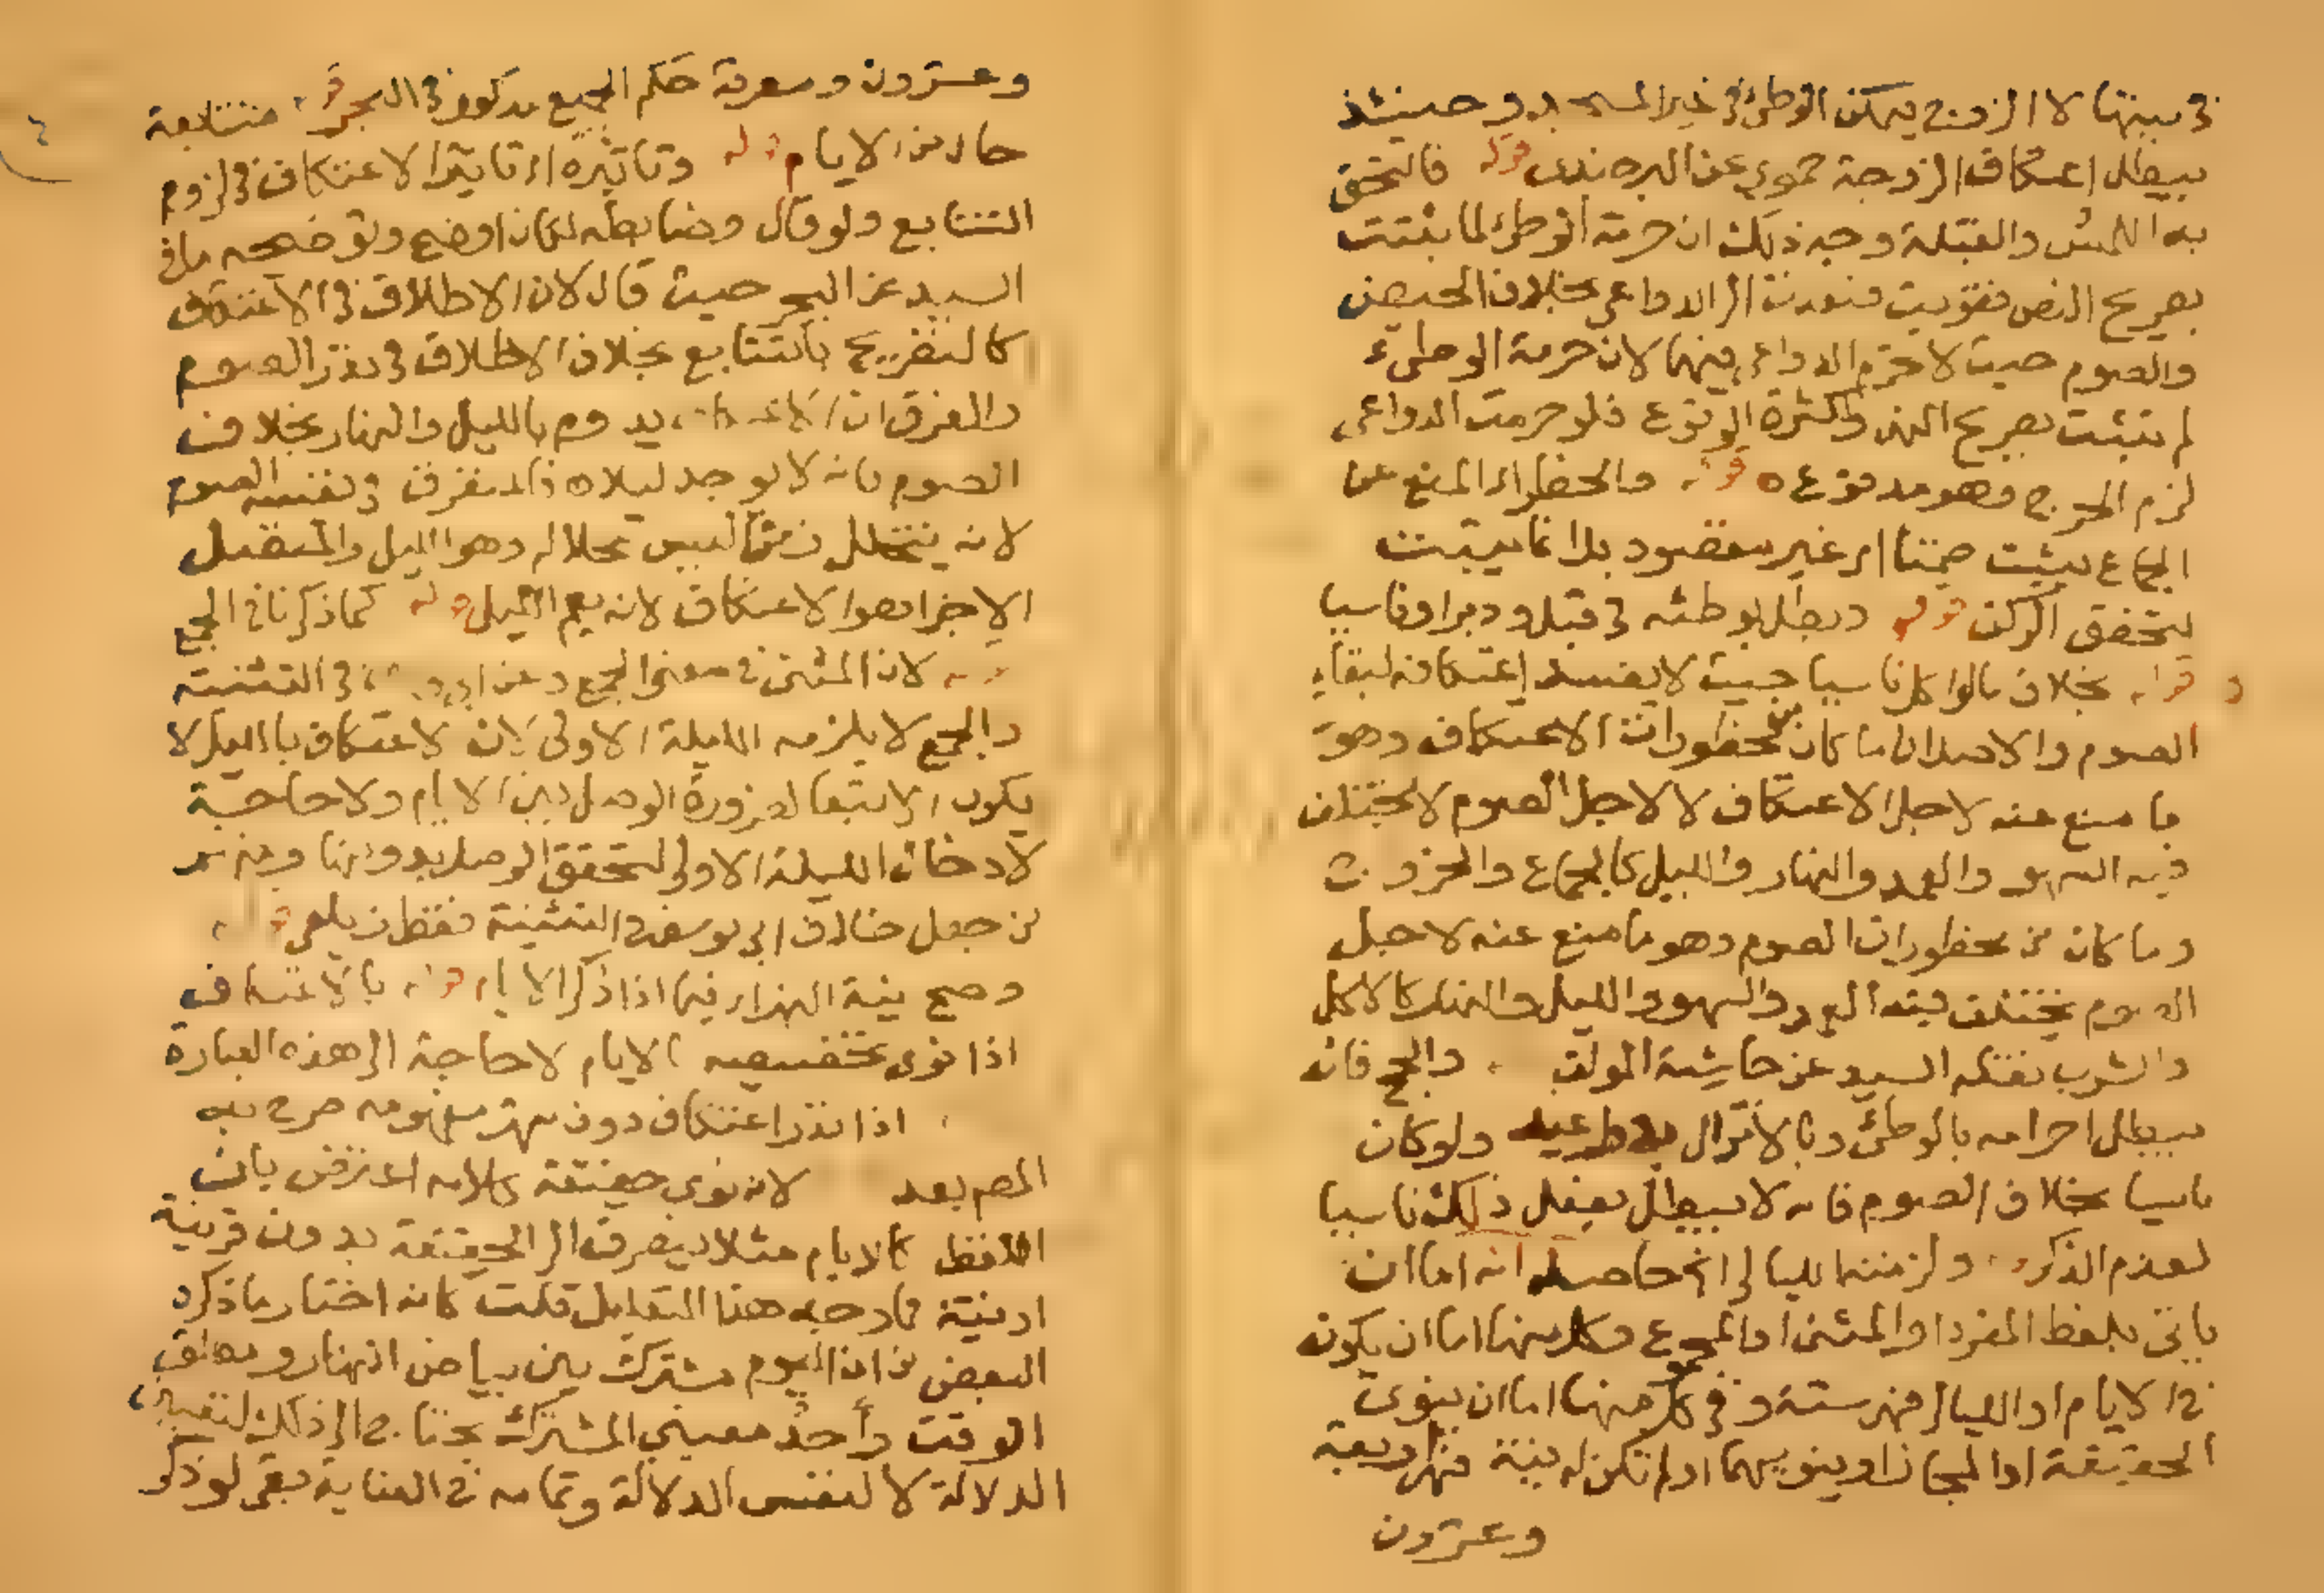 في بيتها لا الزوج يمكن الوطئ في غير المسجد وحينئذ
يبطل اعتكاف الزوجة حموي عن البرجندي قوله فالتحق
به اللمس والقبلة وجه ذلك ان حرمة الوطئ لما ثبتت
بصريح النص فقويت فتعدت الى الدواعي بخلاف الحيض
والصوم حيث لا تحرم الدواعي فيهما لان حرمة الوطئ
لم تثبت بصريح النهي ولكثرة الوقوع فلو حرمت الدواعي
لزم الحرج وهو مدفوع ه قوله والحظر اي المنع عن
الجماع يثبت ضمنا اي غير مقصود بل انما يثبت
ليتحقق الركن قوله وبطل بوطئه في قبل او دبر او ناسيا
قوله بخلاف ما لو اكل ناسيا حيث لا يفسد اعتكافه لبقاء
الصوم والاصل ان ما كان من محظورات الاعتكاف وهو
ما منع عنه لاجل الاعتكاف لا لاجل الصوم لا يختلف
فيه السهو والعمد والنهار والليل كالجماع والخروج
وما كان من محظورات الصوم وهو ما منع عنه لاجل
الصوم يختلف فيه العمد والسهو والليل والنهار كالاكل
والشرب نقله السيد عن حاشية المؤلف والحج فانه
يبطل احرامه بالوطئ وبالانزال ولو كان
ناسيا بخلاف الصوم فانه لا يبطل بفعل ذلك ناسيا
لعدم الذكر ولزمته الليالي الخ حاصله انه اما ان
ياتي بلفظ المفرد او المثنى او المجموع وكل منها اما ان يكون
في الايام او الليالي فهي ستة وفي كل منها اما ان ينوي
الحقيقة او المجاز او ينويهما او لم تكن له نية فهي اربعة
وعشرون
وعشرون ومعرفة حكم الجميع مذكور في البحر قوله متتابعة
حال من الايام قوله وتاثيره اي تاثير الاعتكاف في لزوم
التتابع ولو قال وضابطه لكان اوضح وتوضيحه ما في
السيد عن البحر حيث قال لان الاطلاق في الاعتكاف
كالتصريح بالتتابع بخلاف الاطلاق في نذر الصوم
والفرق ان الاعتكاف يدوم بالليل والنهار بخلاف
الصوم فانه لا يوجد ليلا ه متفرق في نفسه الصوم
لانه يتخلل زمنا ليس محلا له وهو الليل والمتصل
الاجزا هو الاعتكاف لانه يعم الليل قوله كما ذكرنا في الجمع
لان المثنى في معنى الجمع وعن ابي في التثنية
والجمع لا يلزمه الليلة الاولى لان الاعتكاف بالليل لا
يكون الا تبعا لضرورة الوصل بين الايام ولا حاجة
لادخال الليلة الاولى لتحقق الوصل بدونها
من جعل خلاف ابي يوسف في التثنية فقط زيلعي قوله
وصح نية النهار فيما اذا ذكر الايام قوله بالاعتكاف
اذا نوى تخصيصه الايام لا حاجة الى هذه العبارة
اذا نذر اعتكاف دون شهر مفهومه صرح به
المص بعد لانه نوى حقيقة كلامه اعترض بان
اللفظ كالايام مثلا ينصرف الى الحقيقة بدون قرينة
او نية فما وجه هذا التعليل قلت كانه اختار ما ذكره
البعض من ان اليوم مشترك بين بياض النهار ومطلق
الوقت واحد معنيي المشترك يحتاج الى ذلك لتعيين
الدلالة لا لنفس الدلالة وتمامه في العناية بقي لو ذكر